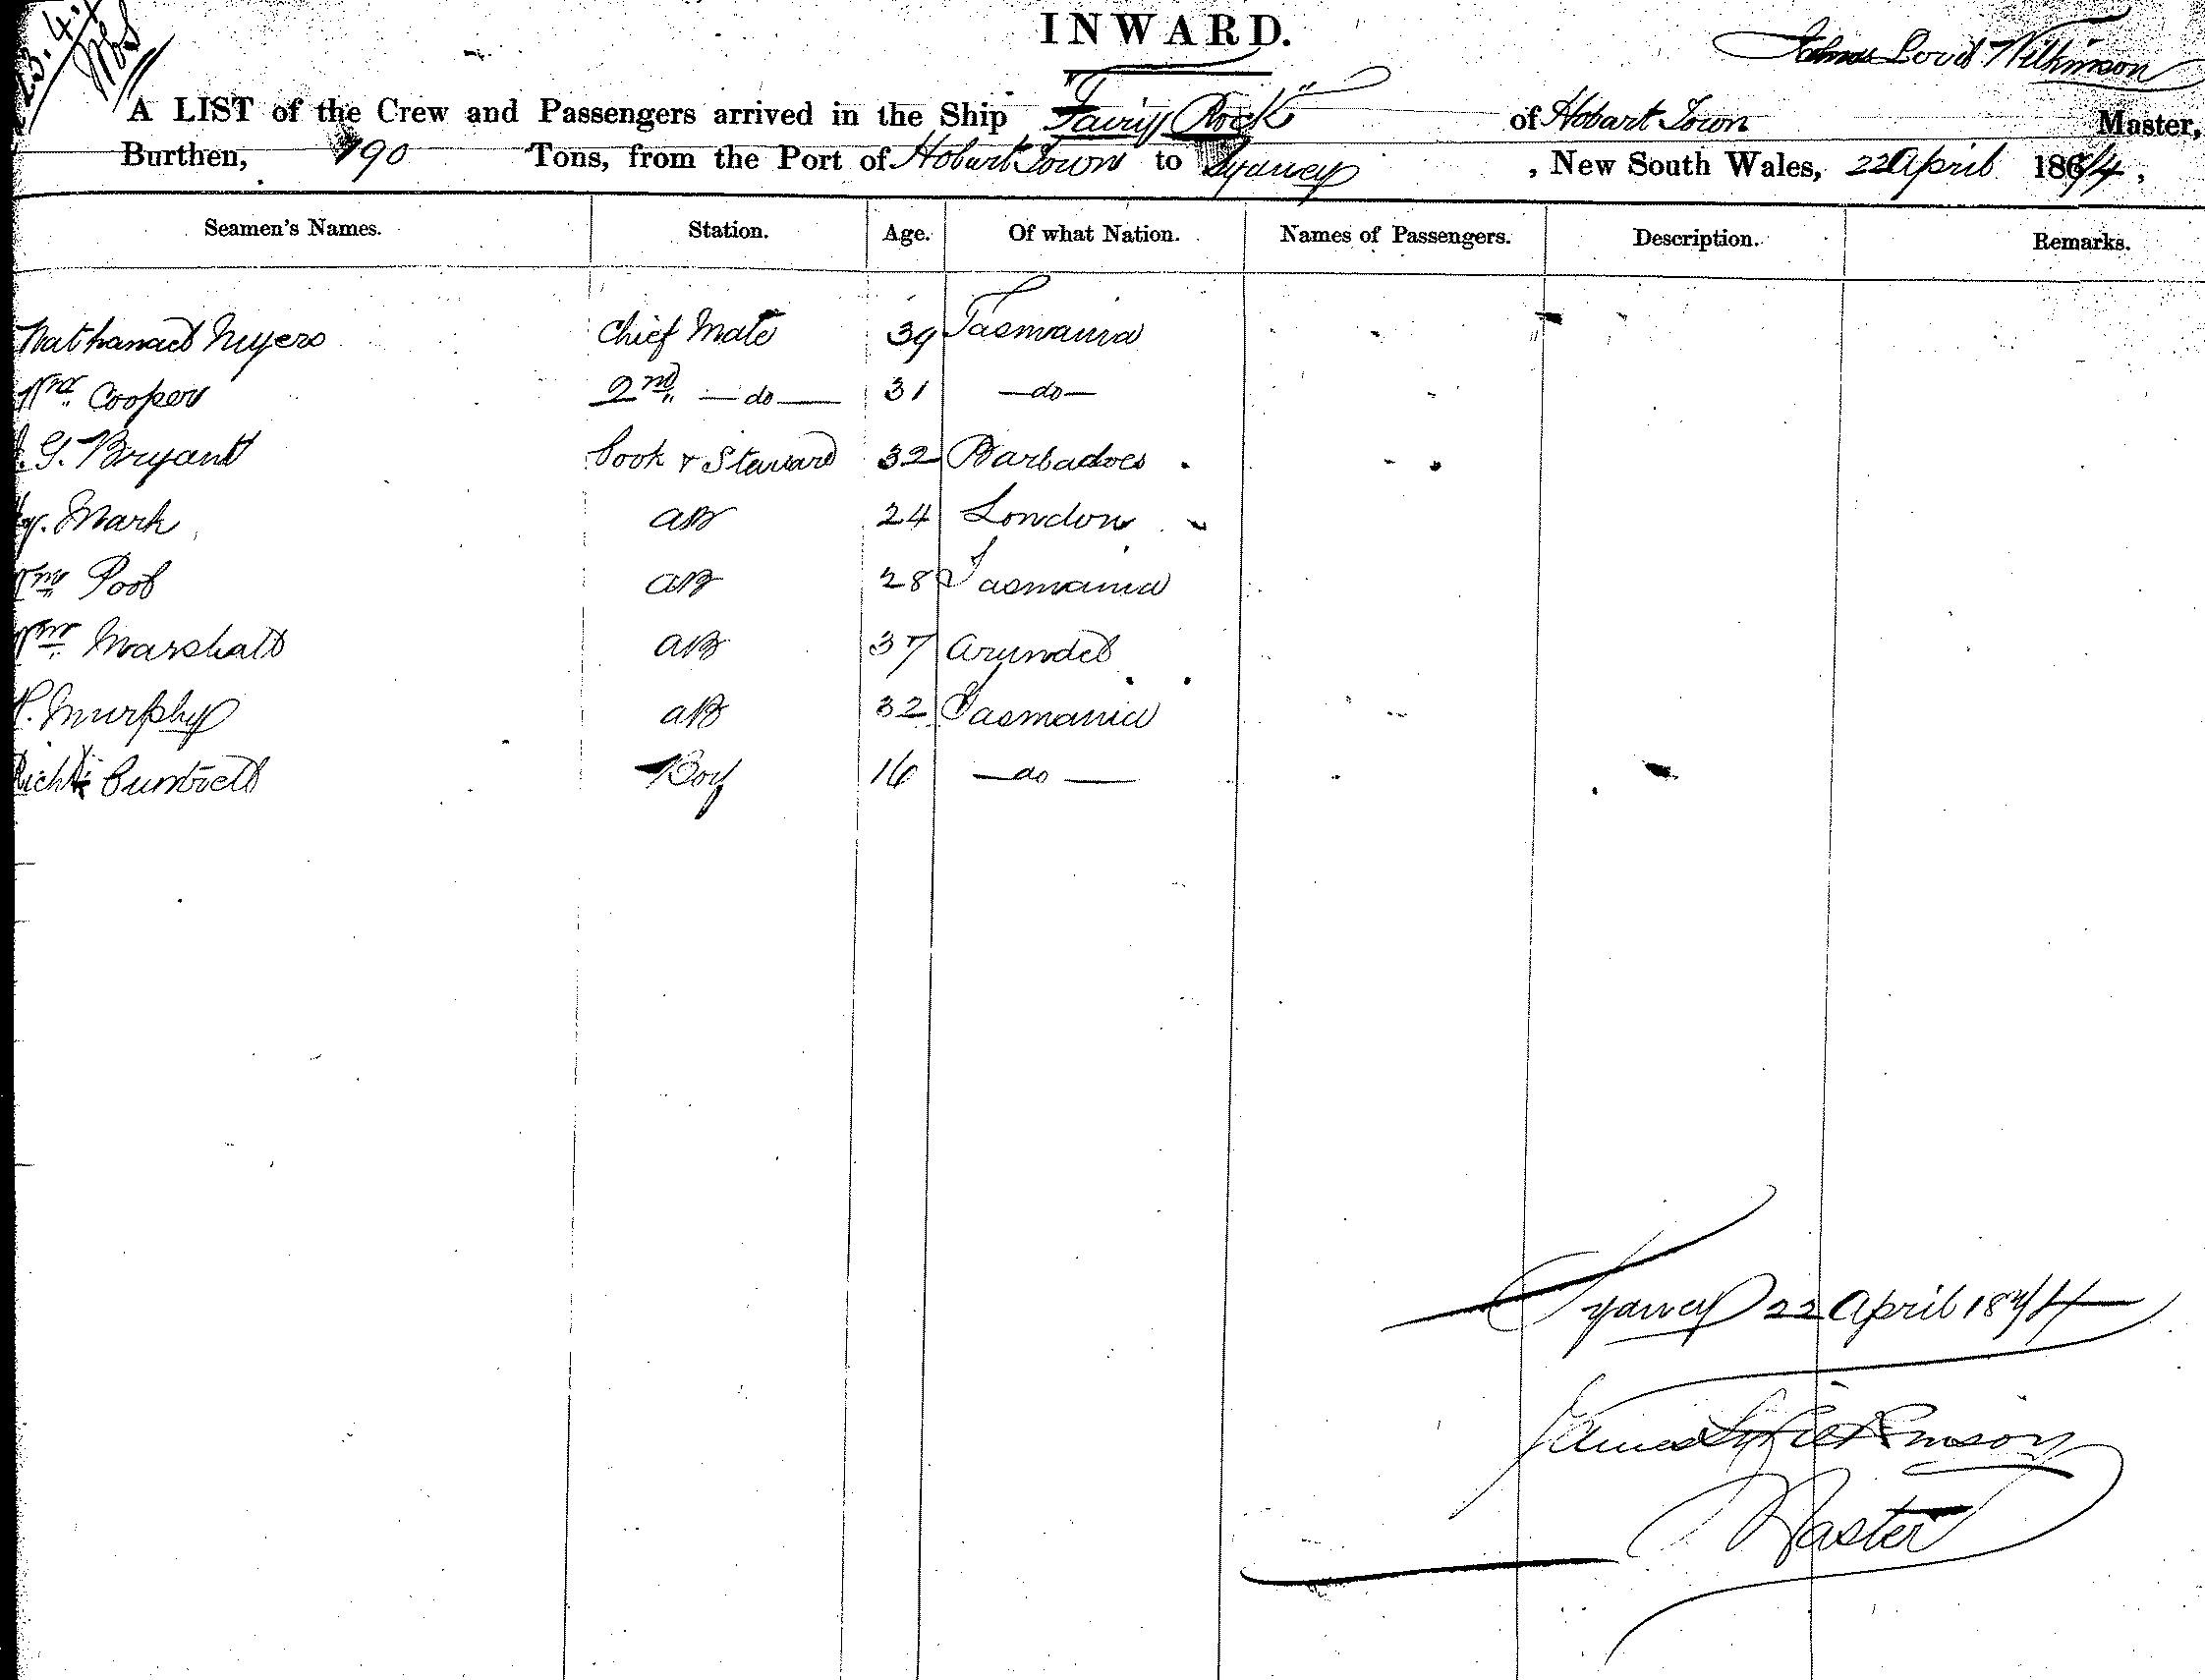 23.4.
INWARD.
James Lovd Wilkinson
A LIST of the Crew and Passengers arrived in the Ship "Fairy Rock" of Hobart Town Master,
Burthen, 190 Tons, from the Port of Hobart Town to Sydney , New South Wales, 22 April 1874,
Seamen's Names. Station. Age. Of what Nation. Names of Passengers. Description. Remarks.
Nathanael Myers Chief Mate 39 Tasmania
Wm Cooper 2nd —do— 31 —do—
G. Bryant Cook & Steward 32 Barbadoes
Hy. Mark AB 24 London
Wm Pool AB 28 Tasmania
Wm Marshall AB 37 Arundel
P. Murphy AB 32 Tasmania
Richd Boy 16 —do—
Sydney 22 April 1874
James L Wilkinson
Master